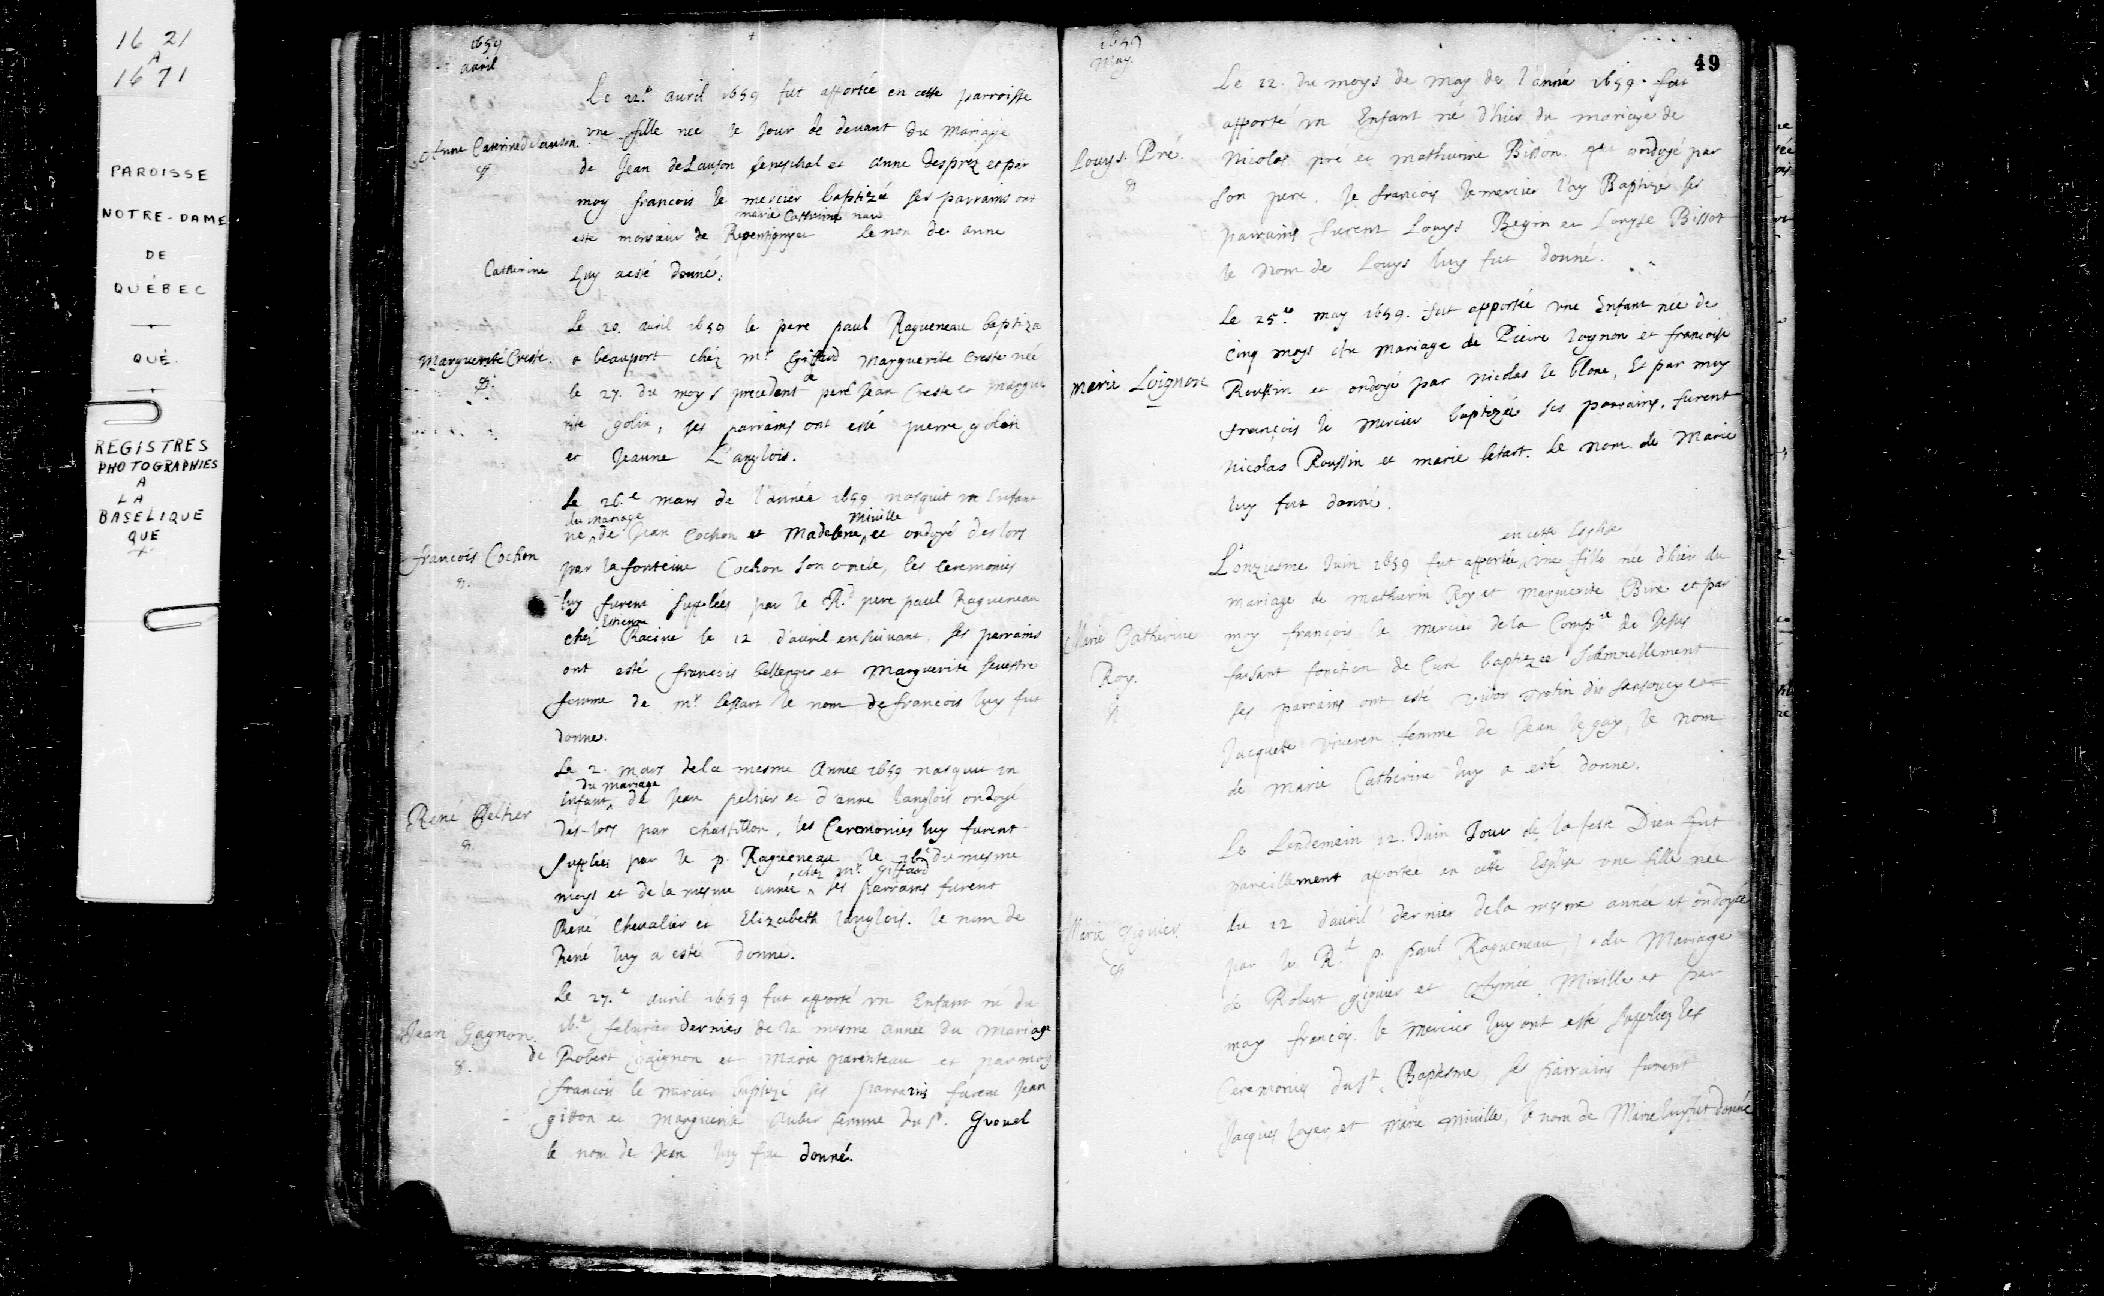 16 21
A
16 71
PAROISSE
NOTRE-DAME
DE
QUÉBEC
QUÉ.
REGISTRES
PHOTOGRAPHIES
A
LA
BASELIQUE
QUE
1659
avril
Le 12.e avril 1659 fut apportée en cette parroisse
Anne Caterine de Lauson.
vne fille née le Jour de devant du Mariage
de Jean de Lauson seneschal et Anne Desprez et par
moy francois le mercier baptizée ses parrains ont
marie Catherine
esté monsieur de Repentigny et le nom de Anne
Catherine luy a esté donné.
Le 20. avril 1659 le pere paul Ragueneau baptiza
Marguerite Creste.
a beauport chez mr Giffard Marguerite Creste née
le 27. du moys precedent de pere Jean Creste et Margue
rite golin, ses parrains ont esté pierre golin
et Jeanne L'anglois.
Le 26.e mars de l'année 1659 nasquit vn Enfant
du mariage Miville
né de Jean Cochon et Madelene, et ondoyé des lors
francois Cochon
par la fonteine Cochon son oncle, les ceremonies
luy furent suplées par le R.d pere paul Ragueneau
Estienne
chez Racine le 12 d'avril ensuivant, ses parrains
ont esté francois bellenger et Marguerite sevestre
femme de mr lessart le nom de francois luy fut
donné.
Le 2. mars de la mesme Année 1659 nasquit vn
du mariage
Enfant de Jean peltier et d'anne langlois ondoyé
René Peltier
des-lors par chastillon, les Ceremonies luy furent
suplées par le p. Ragueneau le 16 du mesme
chez mr giffard
moys et de la mesme année, ses parrains furent
René Chevalier et Elizabeth langlois. le nom de
René luy a esté donné.
Le 27.e avril 1659 fut apporté vn Enfant né du
16.e febvrier dernier de la mesme année du Mariage
Jean Gagnon.
de Robert gaignon et Marie parenteau et par moy
francois le mercier baptizé ses parrains furent Jean
gitton et marguerite Auber femme du sr. Grouel
le nom de Jean luy fut donné.
1659
May.
49
Le 22. du moys de may de l'anné 1659. fut
apporté vn Enfant né d'hier du mariage de
Louys Pré.
Nicolas pré et mathurine Bisson. ondoyé par
son pere. Je francois le mercier l'ay Baptizé ses
parrains furent Louys Begin et Louyse Bissot
le nom de Louys luy fut donné.
Le 25.e may 1659. fut apportée vne Enfant née de
cinq moys du mariage de Pierre loygnon et francoise
marie Loignon
Roussin et ondoyé par Nicolas le blanc, Et par moy
françois le mercier baptizée ses parrains, furent
Nicolas Roussin et marie letart. le nom de Marie
luy fut donné.
en cette Eglise
L'onziesme Juin 1659 fut apportée vne fille née d'hier du
mariage de mathurin Roy et marguerite Biré et par
Marie Catherine
Roy.
moy françois le mercier de la Comp.ie de Jesus
faisant fonction de Curé baptizée solemnellement
ses parrains ont esté dit sansoucy et
Jacquete viveren femme de Jean le gay, le nom
de Marie Catherine luy a esté donné.
Le Lendemain 12. Juin Jour de la feste Dieu fut
pareillement apportée en cette Eglise vne fille née
du 12 d'avril dernier de la mesme année et ondoyée
Marie Giguier.
par le R.d p. paul Ragueneau, du Mariage
de Robert giguier et Aymée Miville et par
moy françois le Mercier luy ont esté suppliez les
Ceremonies du st Baptesme, ses parrains furent
Jacques loyer et Marie Miville, le nom de Marie luy fut donné